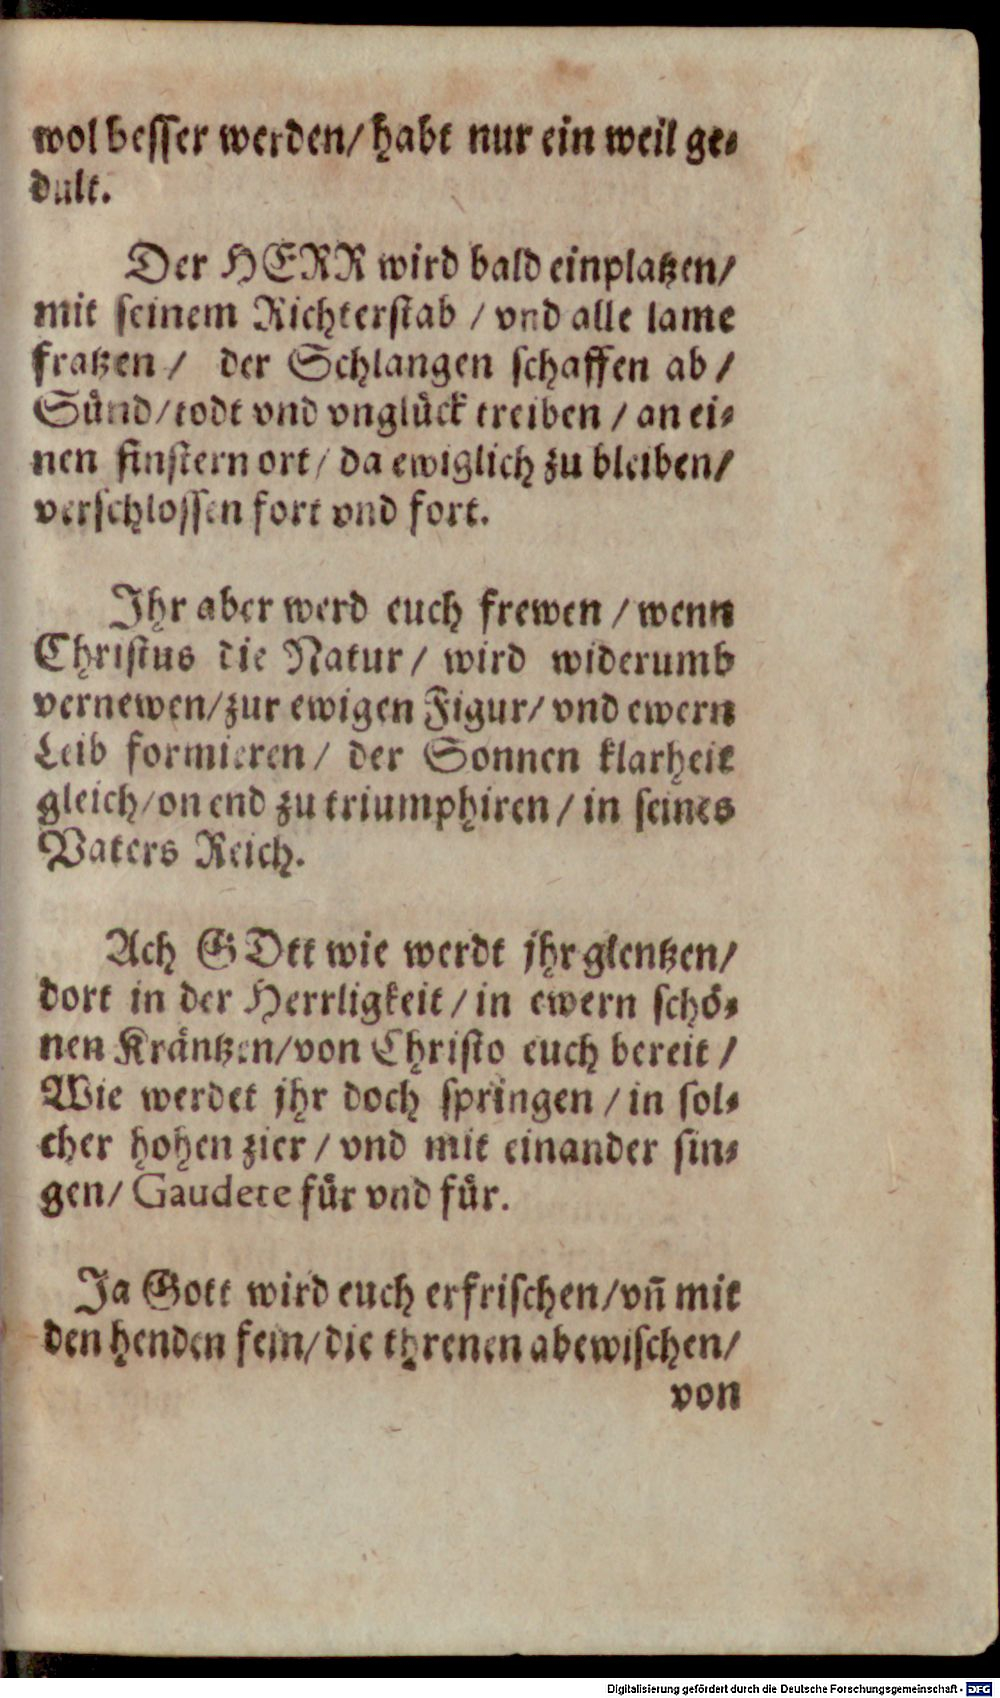 wol besser werden/ habt nur ein weil ge-
dult.
Der HERR wird bald einplatzen/
mit seinem Richterstab / vnd alle lame
fratzen / der Schlangen schaffen ab /
Sünd/ todt vnd vnglück treiben / an ei-
nen finstern ort/ da ewiglich zu bleiben/
verschlossen fort vnd fort.
Ihr aber werd euch frewen / wenn
Christus die Natur / wird widerumb
vernewen/ zur ewigen Figur/ vnd ewern
Leib formieren / der Sonnen klarheit
gleich/ on end zu triumphiren / in seines
Vaters Reich.
Ach GOtt wie werdt jhr glentzen/
dort in der Herrligkeit / in ewern schö-
nen Kräntzen/ von Christo euch bereit /
Wie werdet jhr doch springen / in sol-
cher hohen zier / vnd mit einander sin-
gen/ Gaudete für vnd für.
Ja Gott wird euch erfrischen/ vñ mit
den henden fein/ die threnen abewischen/
von
Digitalisierung gefördert durch die Deutsche Forschungsgemeinschaft - DFG